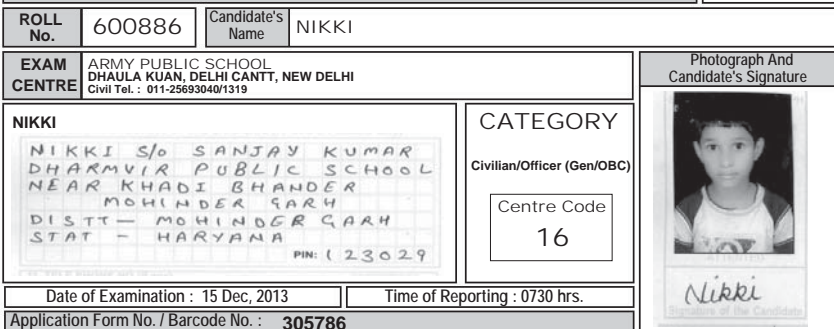 ROLL No. 600886 Candidate's Name NIKKI
EXAM CENTRE
ARMY PUBLIC SCHOOL
DHAULA KUAN, DELHI CANTT, NEW DELHI
Civil Tel. : 011-25693040/1319
Photograph And
Candidate's Signature
NIKKI
NIKKI S/o SANJAY KUMAR
DHARMVIR PUBLIC SCHOOL
NEAR KHADI BHANDER
MOHINDER GARH
DISTT — MOHINDER GARH
STAT - HARYANA
PIN: 123029
CATEGORY
Civilian/Officer (Gen/OBC)
Centre Code
16
Nikki
Signature of the Candidate
Date of Examination : 15 Dec, 2013
Time of Reporting : 0730 hrs.
Application Form No. / Barcode No. : 305786